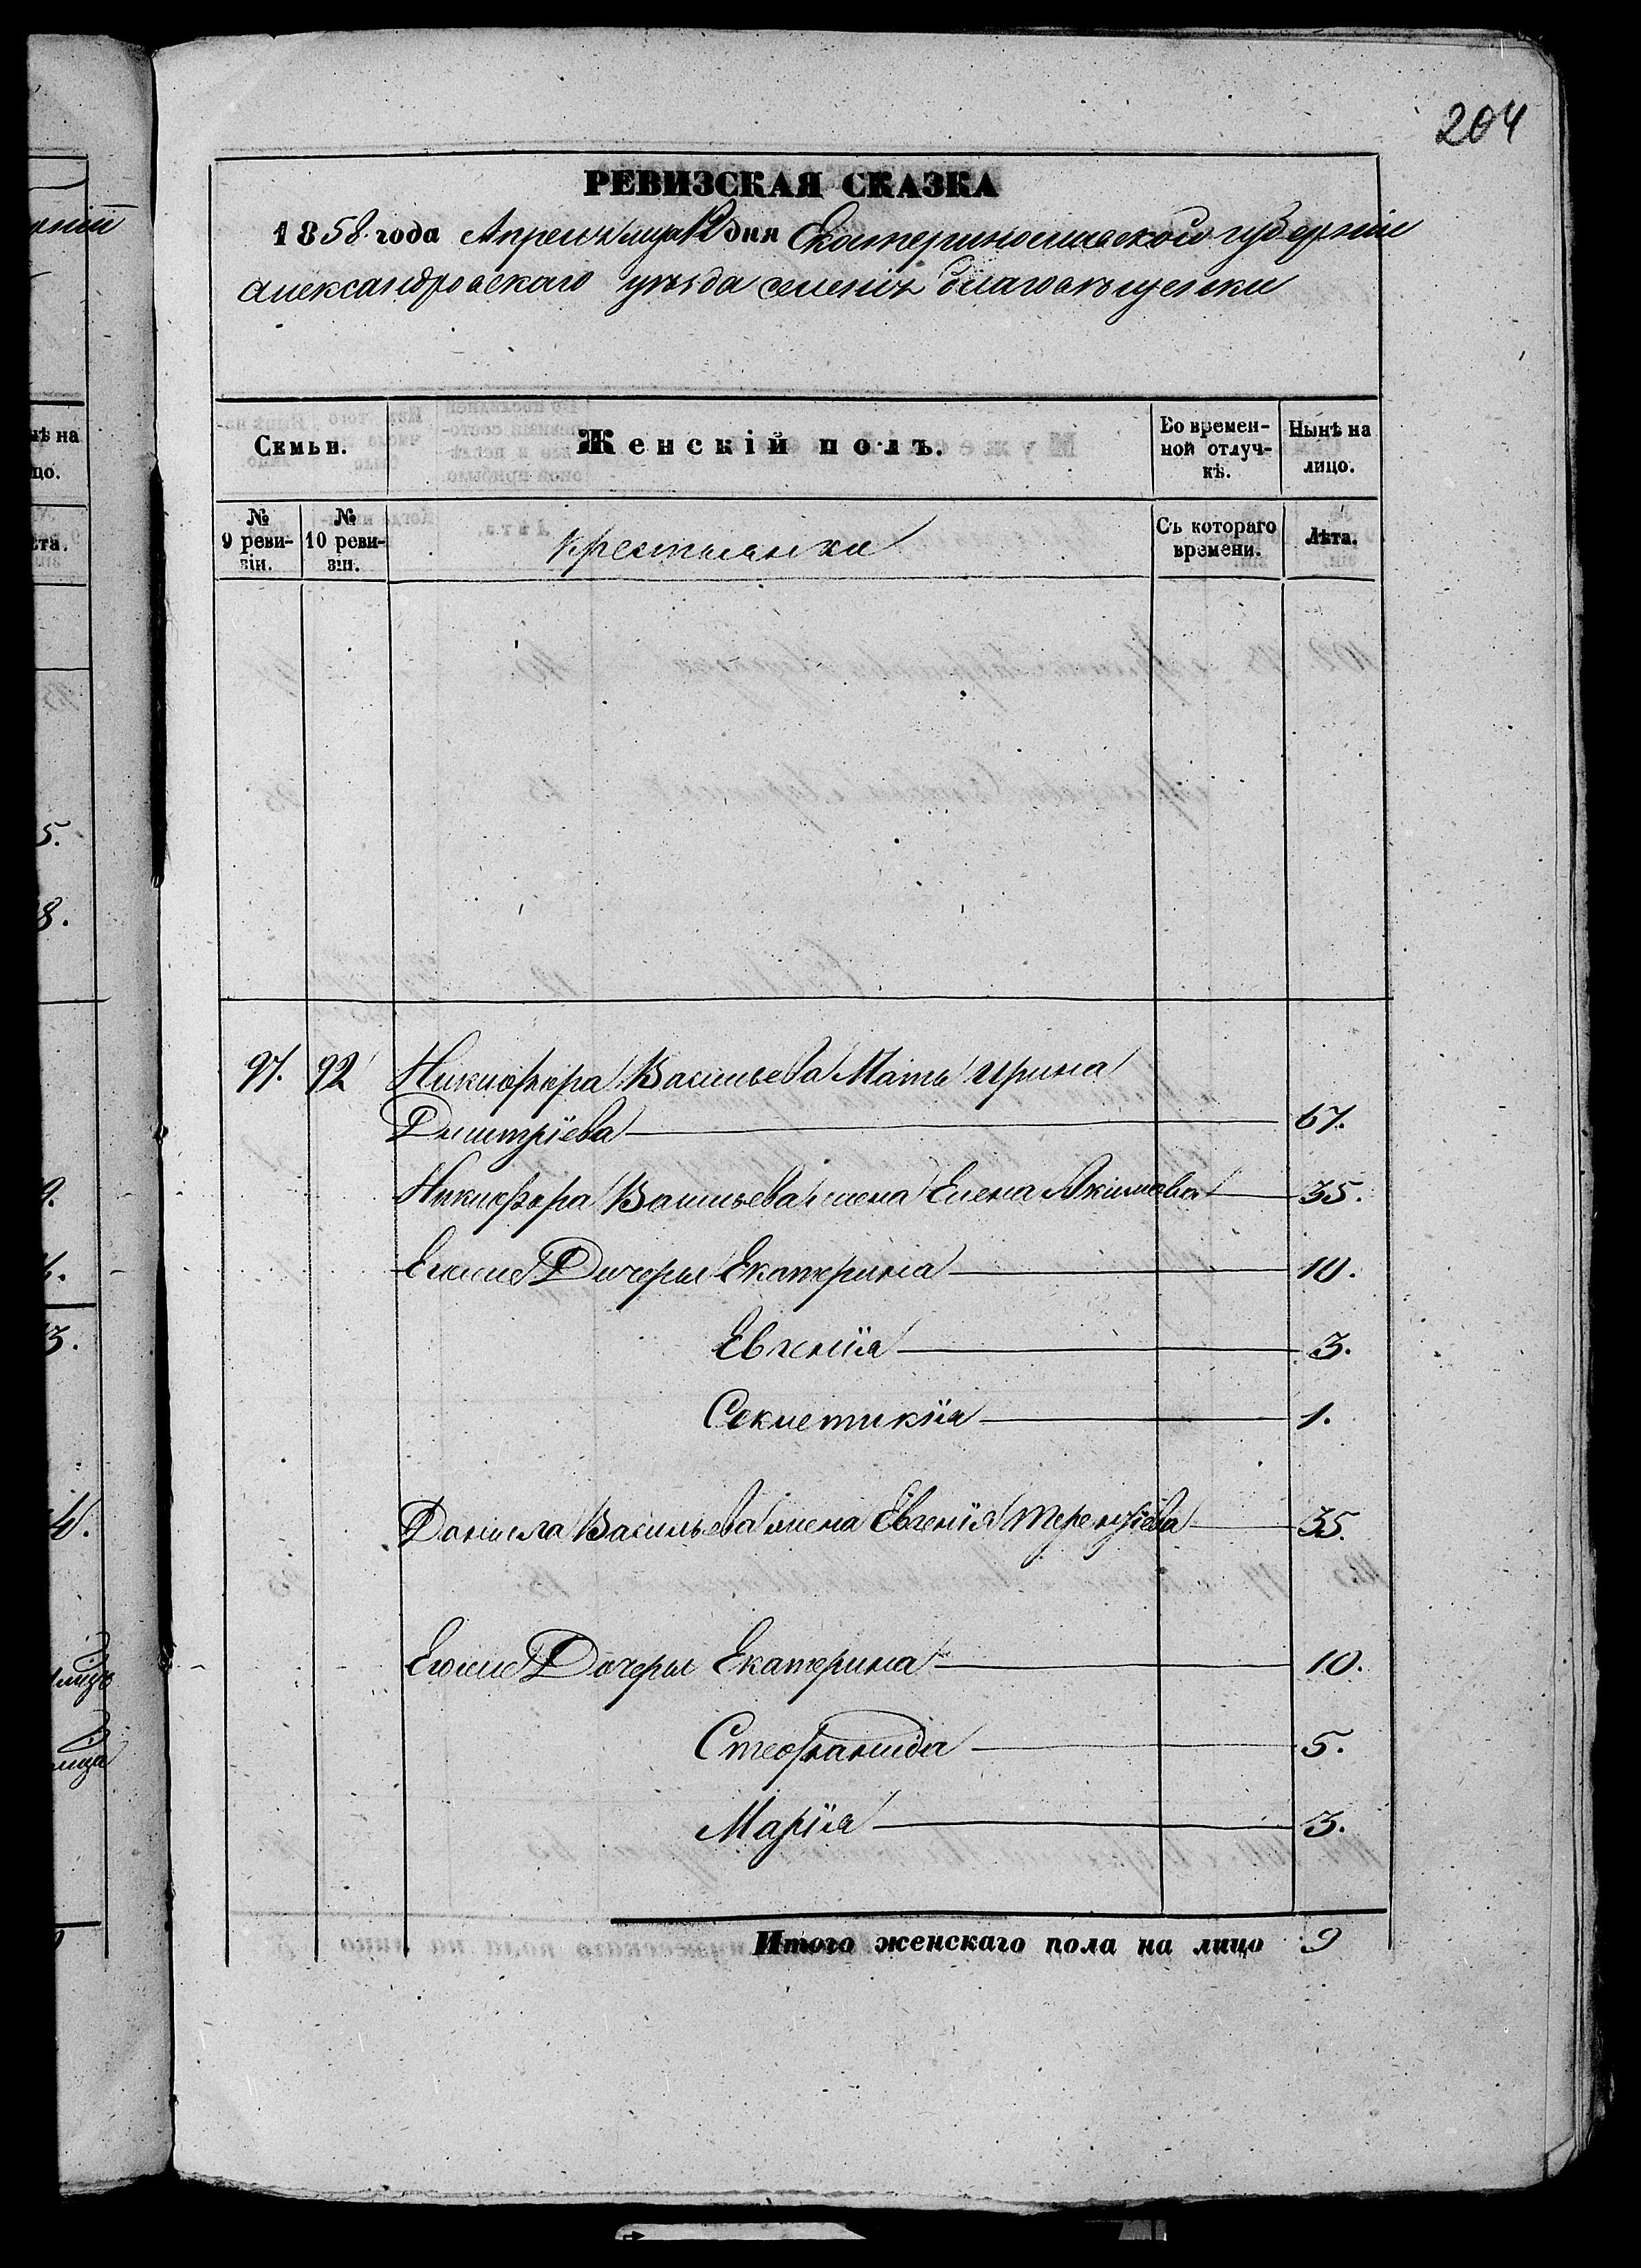 204
РЕВИЗСКАЯ СКАЗКА
1858. года Апреля мца 12 дня Екатеринославской губерніи
Александровскаго уѣзда селенія Благовѣщенки
Семьи.
Женскій полъ.
Во времен-
ной отлуч-
кѣ.
Нынѣ на
лицо.
№
9 реви-
зіи.
№
10 реви-
зіи.
крестьянки
Съ котораго
времени.
Лѣта.
97. 92 Никифора Васильева Мать Ирина
Дмитріева 67.
Никифора Васильева жена Елена Якимова 35.
Егоже Дочеры Екатерина 10.
Евгенія 3.
Секлетикія 1.
Данила Васильева жена Евгенія Терентіева 35.
Егоже Дочеры Екатерина 10.
Стефанида 5.
Марія 3.
Итого женскаго пола на лицо 9